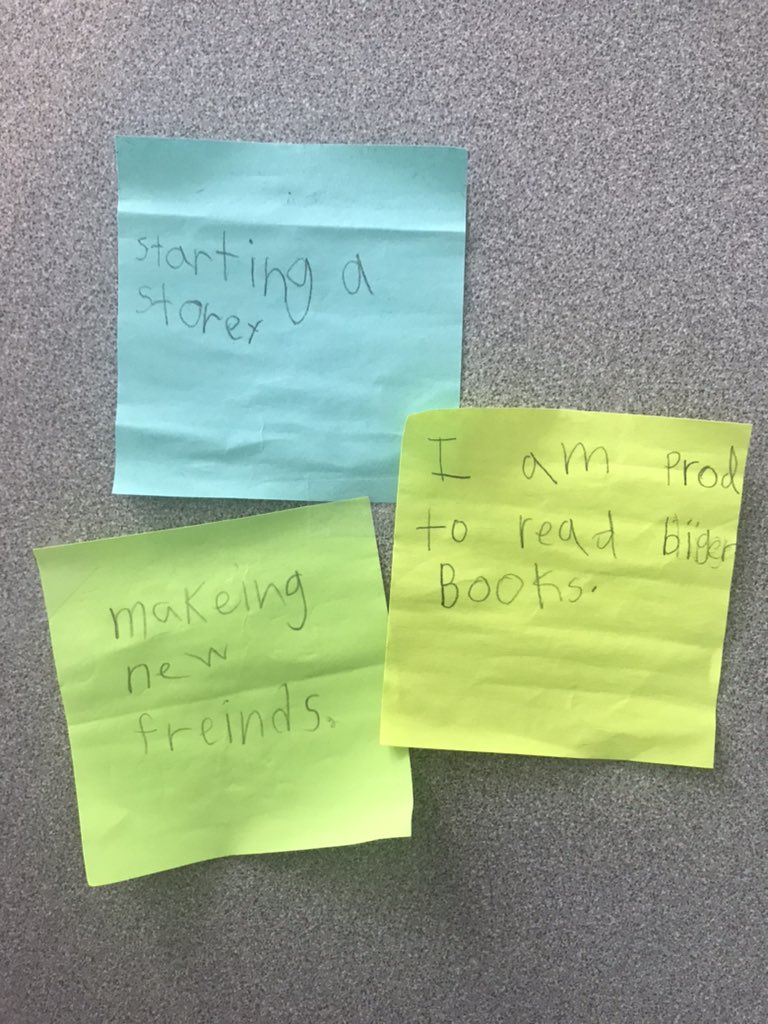 starting a
storey
I am prod
to read biiger
Books.
makeing
new
freinds.